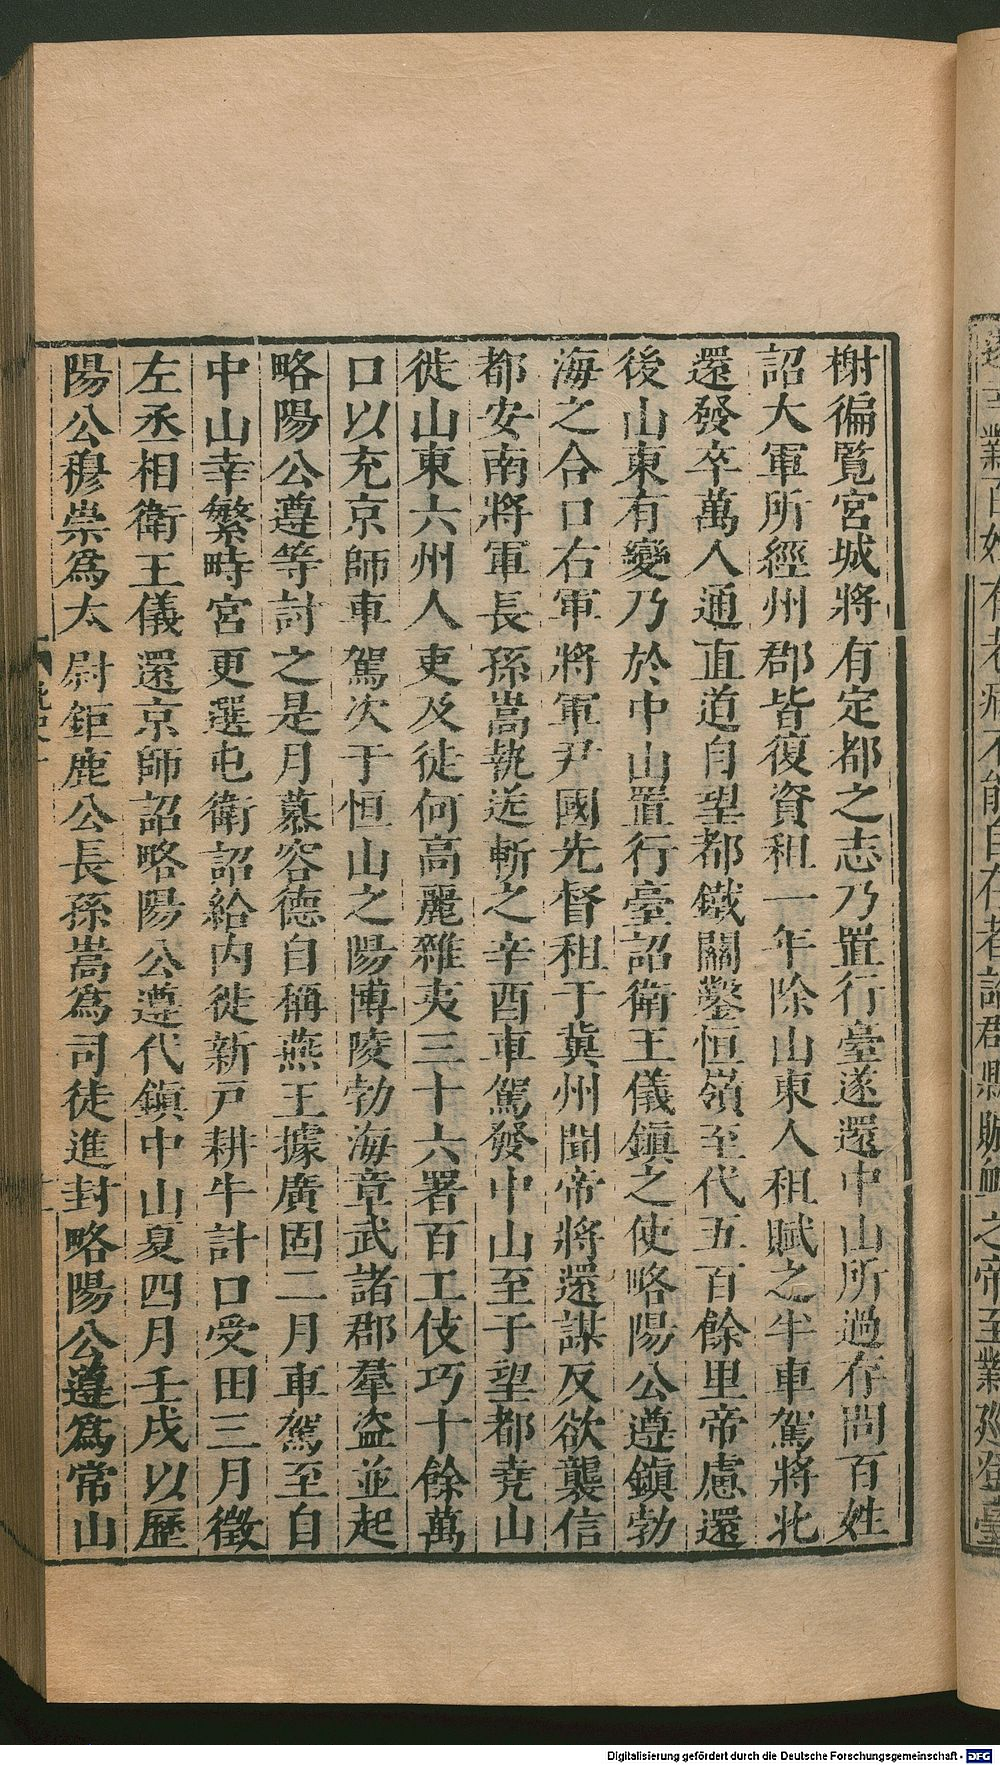 榭徧覽宮城將有定都之志乃置行臺遂還中山所過存問百姓
詔大軍所經州郡皆復資租一年除山東人租賦之半車駕將北
還發卒萬人通直道自望都鐵關鑿恒嶺至代五百餘里帝慮還
後山東有變乃於中山置行臺詔衛王儀鎮之使略陽公遵鎮勃
海之合口右軍將軍尹國先督租于冀州聞帝將還謀反欲襲信
都安南將軍長孫嵩執送斬之辛酉車駕發中山至于望都堯山
徙山東六州人吏及徒何高麗雜夷三十六署百工伎巧十餘萬
口以充京師車駕次于恒山之陽博陵勃海章武諸郡羣盜並起
略陽公遵等討之是月慕容德自稱燕王據廣固二月車駕至自
中山幸繁畤宮更選屯衛詔給內徙新戸耕牛計口受田三月徵
左丞相衛王儀還京師詔略陽公遵代鎮中山夏四月壬戌以歷
陽公穆崇爲太尉鉅鹿公長孫嵩爲司徒進封略陽公遵爲常山
Digitalisierung gefördert durch die Deutsche Forschungsgemeinschaft - DFG